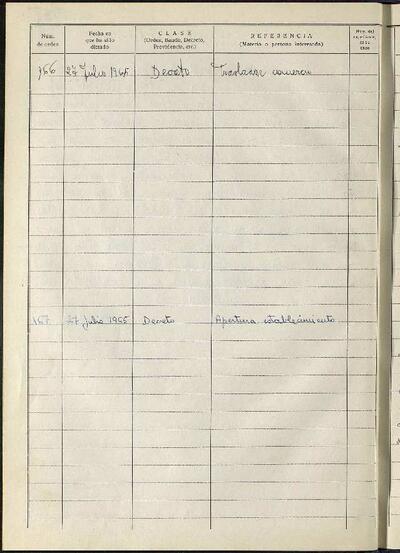 Núm. de orden
Fecha en que ha sido dictado
CLASE
(Orden, Bando, Decreto, Providencia, etc.)
REFERENCIA
(Materia o persona interesada)
166 27 Julio 1965 Decreto
167 27 Julio 1965 Decreto Apertura establecimiento